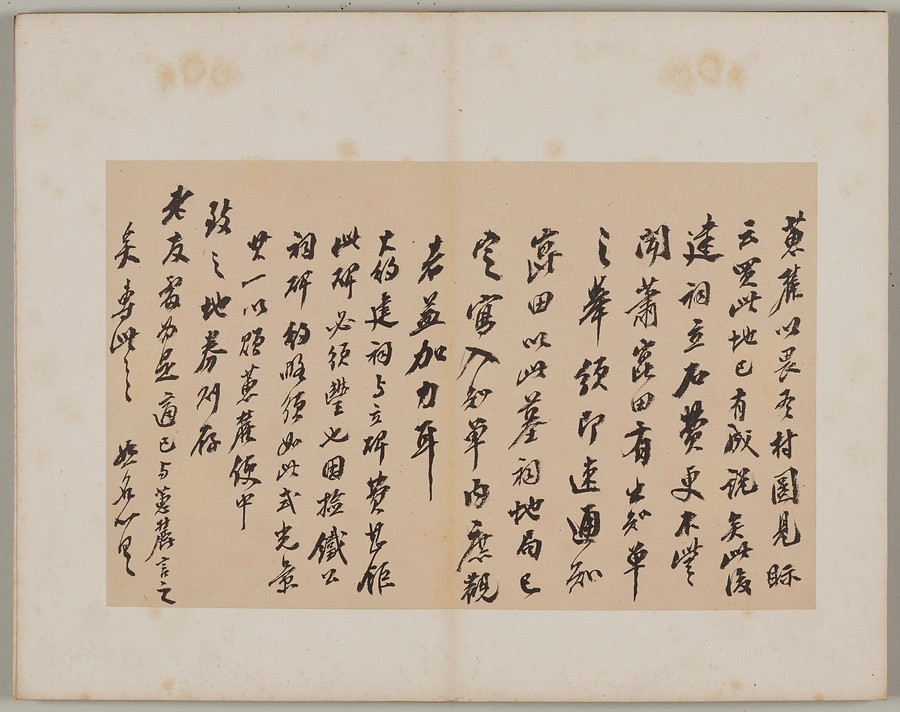 蕙麓以畏吾村圖見眎
云買此地已有成說矣此後
建祠立石費更不貲
聞蕭崑田有出知單
之舉須即速通知
崑田以此墓祠地局已
定寫入知單內庶觀
者益加力耳
大約建祠與立碑費甚鉅
此碑必須豐也因撿鐵公
祠碑約略須如此式先豪
共一以煩蕙麓便中
致之地券則存
老友處為是適已與蕙麓言之
矣專此